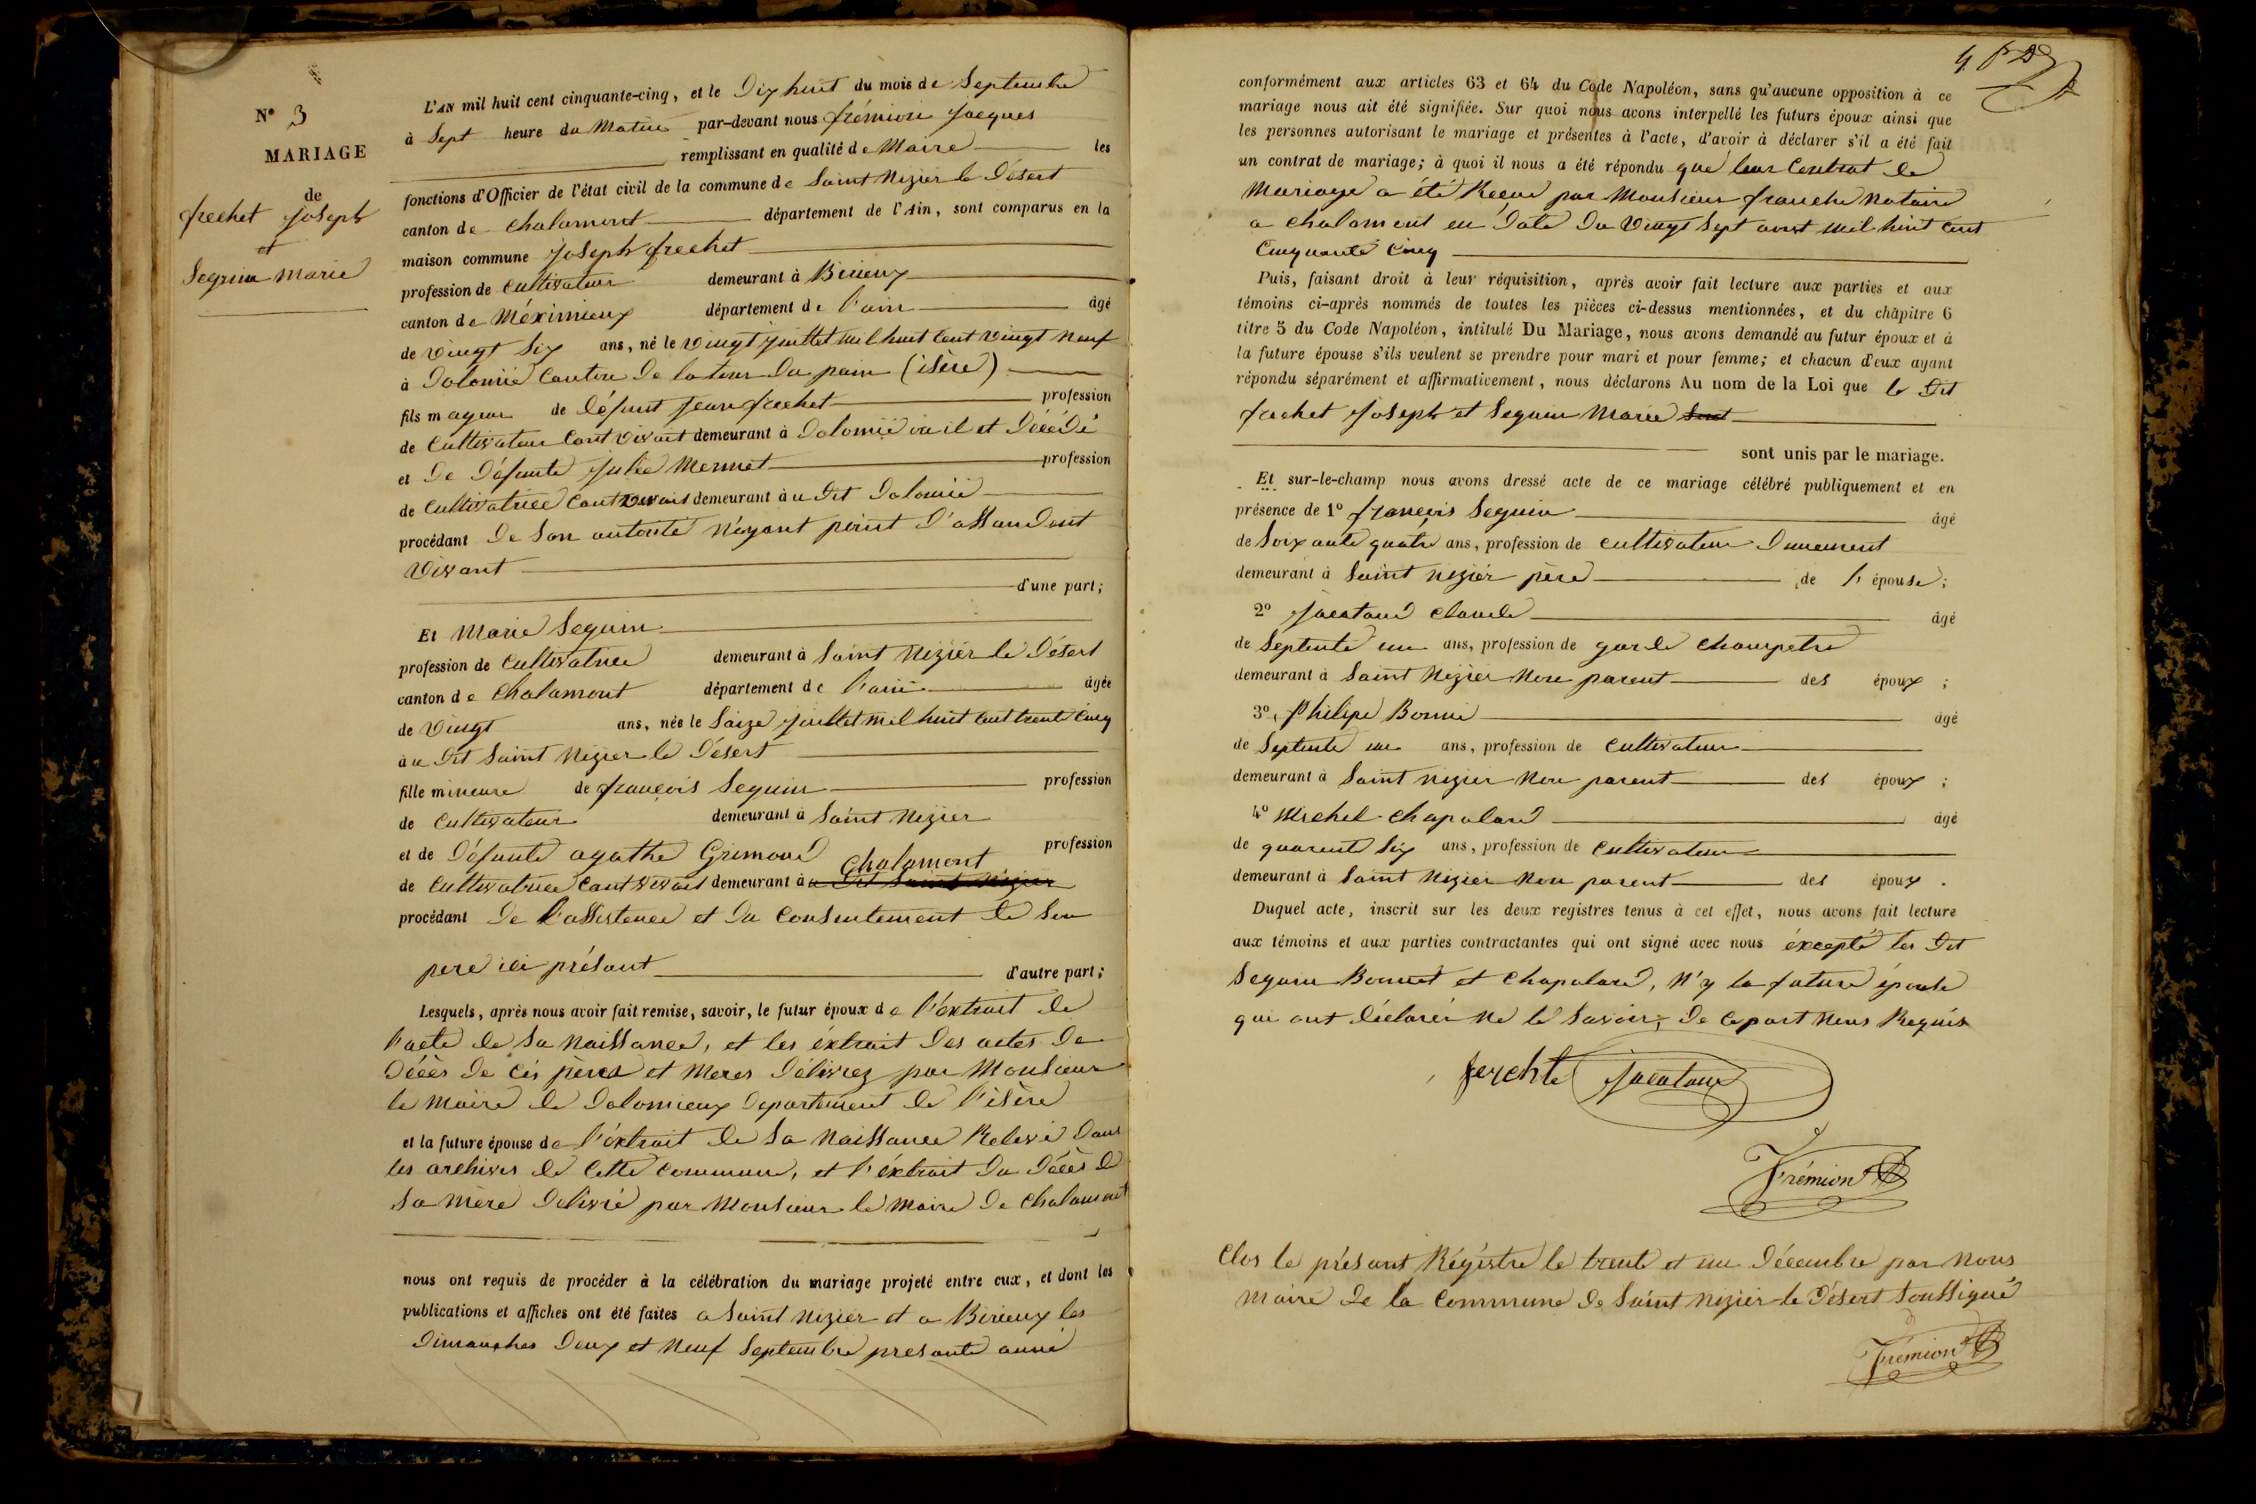 N° 3
MARIAGE
de
frechet Joseph
et
Seguin Marie
L'AN mil huit cent cinquante-cinq, et le Dix huit du mois de Septembre
à Sept heure du Matin par-devant nous frémion Jacques
remplissant en qualité de Maire les
fonctions d'Officier de l'état civil de la commune de Saint Nizier le Désert
canton de Chalamont département de l'Ain, sont comparus en la
maison commune Joseph frechet
profession de Cultivateur demeurant à Birieux
canton de Méximieux département de l'ain âgé
de vingt Six ans, né le vingt juillet mil huit Cent vingt neuf
à Dolomié Canton De la tour Du pain (isère)
fils mageur de Défunt Jean frechet profession
de Cultivateur Cant vivait demeurant à Dolomié ou il et Décédé
et De Défunte Julie Mennet profession
de Cultivatrice Cant vivait demeurant à u Dit Dolomié
procédant De Son autorité N'ayant point D'assandent
Vivant
d'une part;
Et Marie Seguin
profession de Cultivatrice demeurant à Saint Nizier le Désert
canton de Chalamont département de l'ain âgée
de Vingt ans, née le Saize juillet mil huit Cent trente Cinq
à u Dit Saint Nizier le Désert
fille mineure de françois Seguin profession
de Cultivateur demeurant à Saint Nizier
et de Défunte agathe Grimoud profession
Chalamont
de Cultivatrice Cant vivait demeurant à u Dit Saint Nizier
procédant De l'assistance et Du Consentement de Son
pere ici présant d'autre part;
Lesquels, après nous avoir fait remise, savoir, le futur époux de l'éxtrait de
l'acte de Sa Naissance, et les éxtrait Des actes De
Décès De Cés pères et Meres Délivrez par Monsieur
le Maire de Dolomieux Département de l'isère
et la future épouse de l'éxtrait de Sa Naissance Relevé Dans
les archives de Cette Commune, et l'éxtrait Du Décès de
Sa Mère Délivré par Monsieur le Maire De Chalamont
nous ont requis de procéder à la célébration du mariage projeté entre eux, et dont les
publications et affiches ont été faites a Saint Nizier et a Birieux les
Dimanches Deux et Neuf Septembre presante anné
conformément aux articles 63 et 64 du Code Napoléon, sans qu'aucune opposition à ce
mariage nous ait été signifiée. Sur quoi nous avons interpellé les futurs époux ainsi que
les personnes autorisant le mariage et présentes à l'acte, d'avoir à déclarer s'il a été fait
un contrat de mariage; à quoi il nous a été répondu que leur Contrat de
Mariage a été Reçue par Monsieur franche Notaire
a Chalamont en Date Du Vingt Sept aout mil huit Cent
Cinquante Cinq
Puis, faisant droit à leur réquisition, après avoir fait lecture aux parties et aux
témoins ci-après nommés de toutes les pièces ci-dessus mentionnées, et du chapitre 6
titre 5 du Code Napoléon, intitulé Du Mariage, nous avons demandé au futur époux et à
la future épouse s'ils veulent se prendre pour mari et pour femme; et chacun d'eux ayant
répondu séparément et affirmativement, nous déclarons Au nom de la Loi que le Dit
frechet Joseph et Seguin Marie Sont
sont unis par le mariage.
Et sur-le-champ nous avons dressé acte de ce mariage célébré publiquement et en
présence de 1° françois Seguin âgé
de Soixante quatre ans, profession de Cultivateur
demeurant à Saint Nizier père de l' épouse;
2° Jacataud Claude âgé
de Septente un ans, profession de garde Champetre
demeurant à Saint Nizier Non parent des époux;
3° Philipe Bonnié âgé
de Septente un ans, profession de Cultivateur
demeurant à Saint Nizier Non parent des époux;
4° Michel Chapaland âgé
de quarent Six ans, profession de Cultivateur
demeurant à Saint Nizier Non parent des époux.
Duquel acte, inscrit sur les deux registres tenus à cet effet, nous avons fait lecture
aux témoins et aux parties contractantes qui ont signé avec nous éxcepté les Dit
Seguin Bonnet et Chapaland, N'y la future épouse
qui ont Déclarér Ne le Savoir, De Ce part Nous Requis
ferchte Jacataux
Frémion
Clos le présant Régistre le trente et un Décembre par Nous
Maire De la Commune De Saint Nizier le Désert Soussigné
Frémion